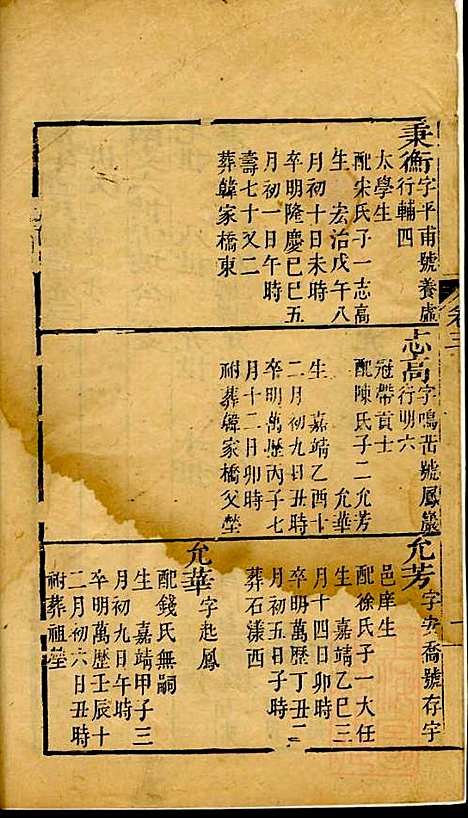 秉衡字平甫號養虛
行輔四
太學生
配宋氏子一志高
生 宏治戊午八
月初十日未時
卒明隆慶己巳五
月初一日午時
壽七十又二
葬韓家橋東
志高字鳴岳號鳳巖
行明六
冠帶貢士
配陳氏子二允芳
允華
生 嘉靖乙酉十
二月初九日丑時
卒明萬歷丙子七
月十二日卯時
祔葬韓家橋父塋
允芳字 喬號存宇
邑庠生
配徐氏子一大任
生 嘉靖乙巳三
月十四日卯時
卒明萬歷丁丑二
月初五日子時
葬石漾西
允華字起鳳
配錢氏無嗣
生 嘉靖甲子三
月初九日午時
卒明萬歷壬辰十
二月初六日丑時
祔葬祖塋
卷三